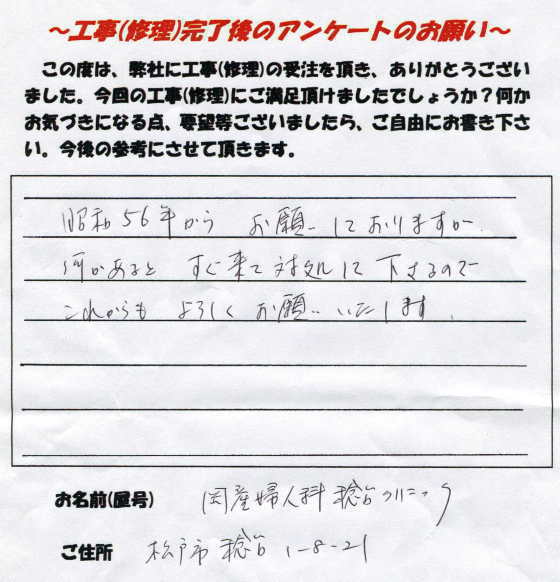 ～工事(修理)完了後のアンケートのお願い～
この度は、弊社に工事(修理)の受注を頂き、ありがとうござい
ました。今回の工事(修理)にご満足頂けましたでしょうか？何か
お気づきになる点、要望等ございましたら、ご自由にお書き下さ
い。今後の参考にさせて頂きます。
昭和56年から お願いしておりますが
何かあると すぐ来て対処して下さるので
これからも よろしく お願いいたします。
お名前(屋号) 岡産婦人科稔台クリニック
ご住所 松戸市稔台1-8-21